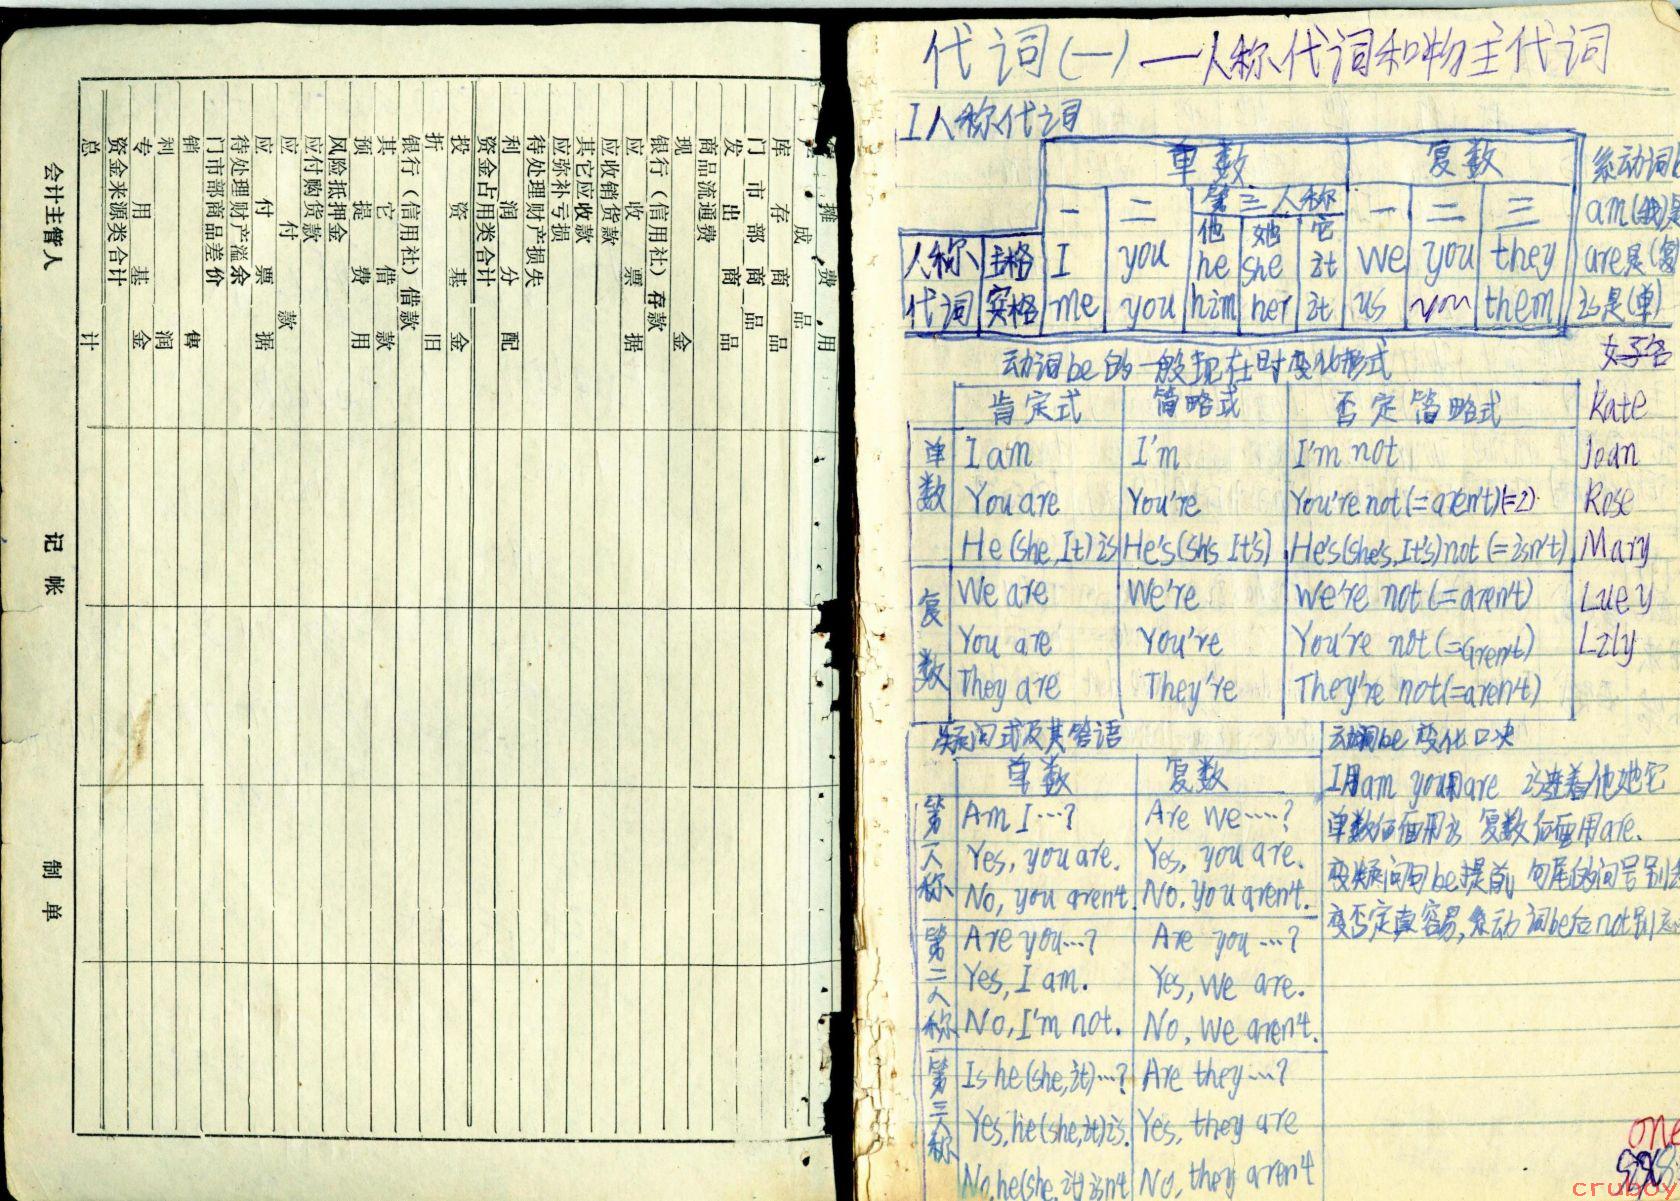 摊 费 用
成 品
库 存 商 品
门 市 部 商 品
发 出 商 品
商品流通费
现 金
银行（信用社）存款
应 收 票 据
应收销货款
其它应收款
应弥补亏损
待处理财产损失
利 润 分 配
资金占用类合计
投 资 基 金
折 旧
银行（信用社）借款
其 它 借 款
预 提 费 用
风险抵押金
应付购货款
应 付 款
应 付 票 据
待处理财产溢余
门市部商品差价
销 售
利 润
专 用 基 金
资金来源类合计
总 计
会计主管人 记 帐 制 单
代词(一)—人称代词和物主代词
I人称代词
单数 复数
一 二 第三人称 一 二 三
他 她 它
人称 主格 I you he she it we you they
代词 宾格 me you him her it us you them
系动词b
am(我)是
are是(复
is是(单)
女子名
Kate
Joan
Rose
Mary
Luey
Lzly
动词be的一般现在时变化形式
肯定式 简略式 否定简略式
单数
I am I'm I'm not
You are You're You're not(=aren't)(=2)
He (she, It) is He's(sh's It's) He's(she's, It's)not(=isn't)
复数
We are We're We're not(=aren't)
You are You're You're not(=aren't)
They are They're They're not(=aren't)
疑问式及其答语
单数 复数
第一人称
Am I…? Are we……?
Yes, you are. Yes, you are.
No, you aren't No. you aren't.
第二人称
Are you…? Are you …?
Yes, I am. Yes, we are.
No, I'm not. No, we aren't.
第三人称
Is he(she, it)…? Are they …?
Yes, he(she, it)is. Yes, they are
No, he(she, it) isn't No, they aren't
动词be变化口决
I用am you用are is连着他她它
单数后面用is 复数后面用are.
变疑问句be提前 句尾的问号别
变否定真容易,系动词be后not别
one
cruboy